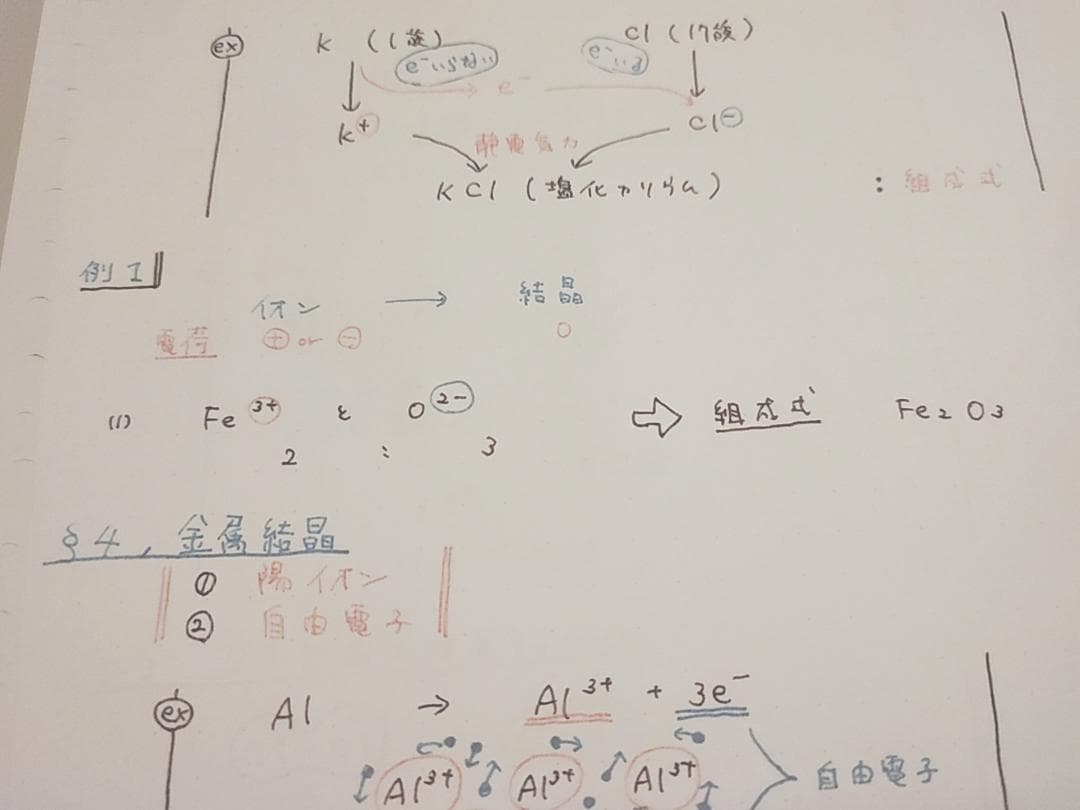 ex K (1族) Cl (17族)
e⁻いらない e⁻いる
e⁻
K⁺ Cl⁻
静電気力
KCl (塩化カリウム) : 組成式
例1
イオン → 結晶
電荷 ⊕ or ⊖ 0
(1) Fe³⁺ と O²⁻ ⇨ 組成式 Fe₂O₃
2 : 3
§4. 金属結晶
① 陽イオン
② 自由電子
ex Al → Al³⁺ + 3e⁻
Al³⁺ Al³⁺ Al³⁺ 自由電子